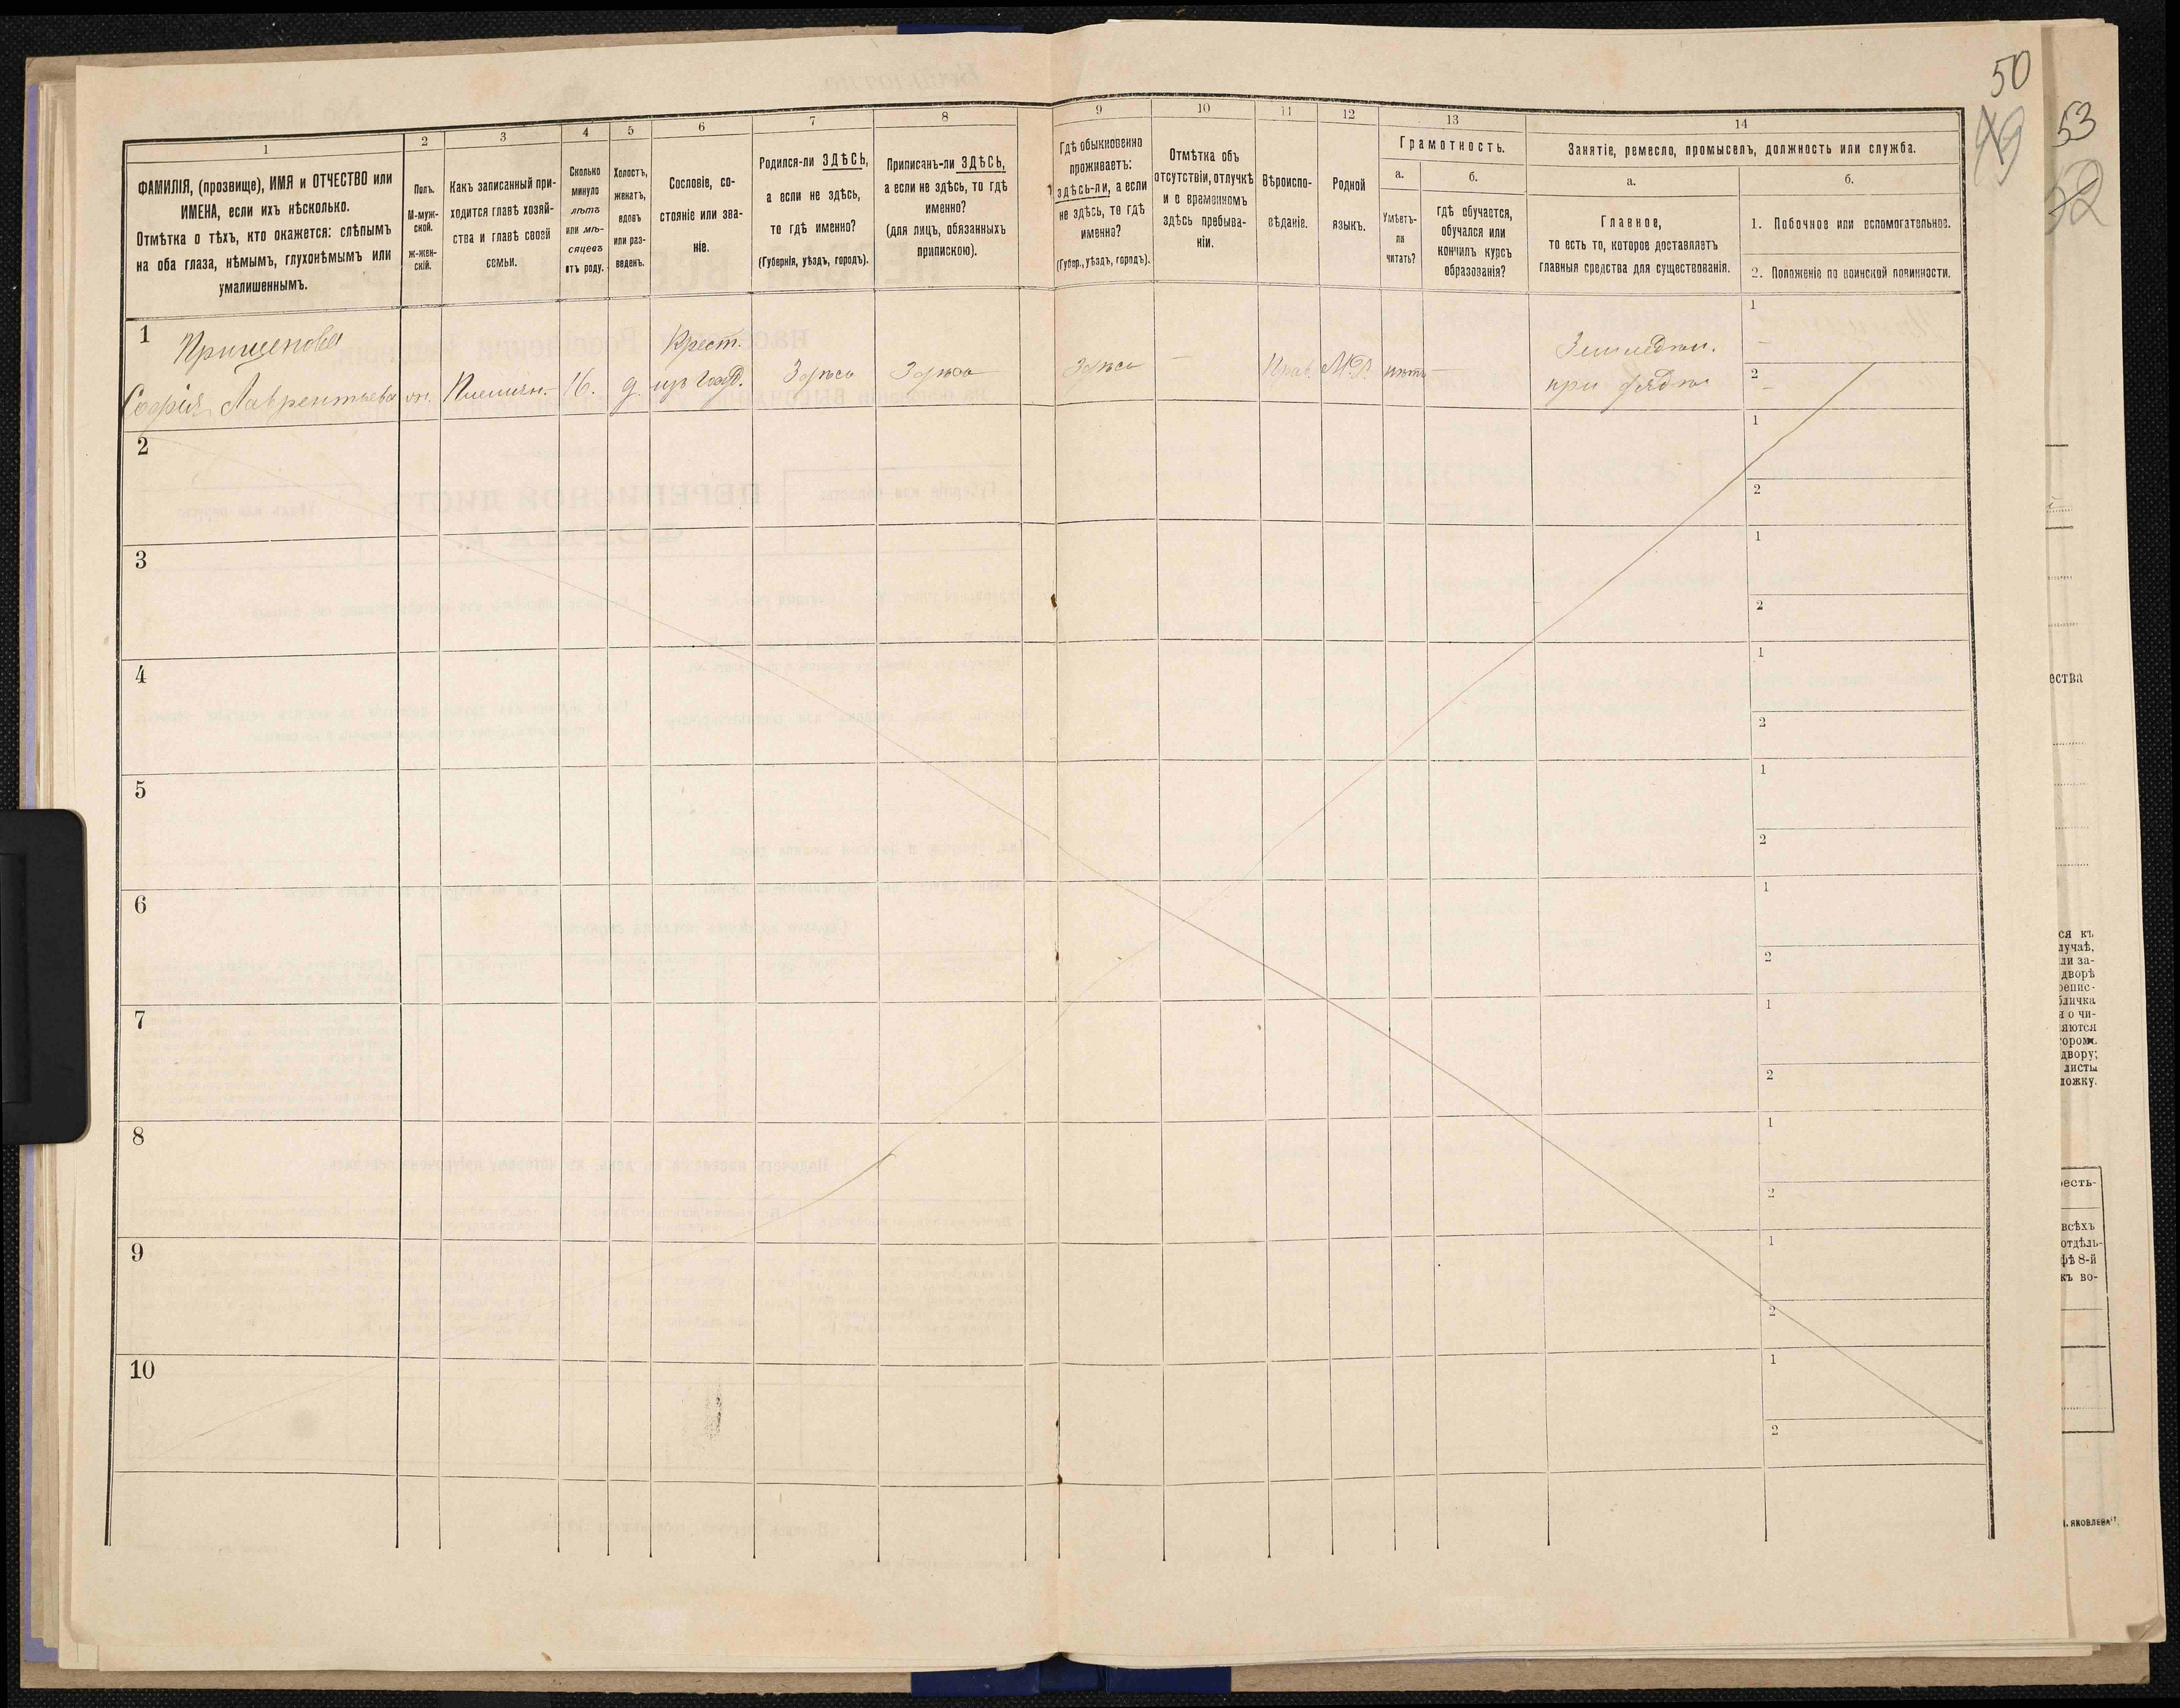 50
49
53
52
1
ФАМИЛІЯ, (прозвище), ИМЯ и ОТЧЕСТВО или
ИМЕНА, если ихъ нѣсколько.
Отмѣтка о тѣхъ, кто окажется: слѣпымъ
на оба глаза, нѣмымъ, глухонѣмымъ или
умалишеннымъ.
2
Полъ.
М-муж-
ской.
ж-жен-
скій.
3
Какъ записанный при-
ходится главѣ хозяй-
ства и главѣ своей
семьи.
4
Сколько
минуло
лѣтъ
или мѣ-
сяцевъ
отъ роду.
5
Холостъ,
женатъ,
вдовъ
или раз-
веденъ.
6
Сословіе, со-
стояніе или зва-
ніе.
7
Родился-ли ЗДѢСЬ,
а если не здѣсь,
то гдѣ именно?
(Губернія, уѣздъ, городъ).
8
Приписанъ-ли ЗДѢСЬ,
а если не здѣсь, то гдѣ
именно?
(для лицъ, обязанныхъ
припискою).
9
Гдѣ обыкновенно
проживаетъ:
здѣсь-ли, а если
не здѣсь, то гдѣ
именно?
(Губер., уѣздъ, городъ).
10
Отмѣтка объ
отсутствіи, отлучкѣ
и о временномъ
здѣсь пребыва-
ніи.
11
Вѣроиспо-
вѣданіе.
12
Родной
языкъ.
13
Грамотность.
а.
Умѣетъ-
ли
читать?
б.
гдѣ обучается,
обучался или
кончилъ курсъ
образованія?
14
Занятіе, ремесло, промыселъ, должность или служба.
а.
Главное,
то есть то, которое доставляетъ
главныя средства для существованія.
б.
1. Побочное или вспомогательное.
2. Положеніе по воинской повинности.
1
Прищепова
Софія Лаврентьева
ж.
Племян.
16.
д.
Крест.
изъ
Здѣсь
Здѣсь
Здѣсь
—
Прав.
М.Р.
нѣтъ
—
Земледѣл.
при дядѣ
1
–
2
–
2
1
2
3
1
2
4
1
2
5
1
2
6
1
2
7
1
2
8
1
2
9
1
2
10
1
2
ества
ся къ
лучаѣ,
ли за-
дворѣ
репис-
бличка
я о чи-
яются
двору;
листы
ложку.
всѣхъ
отдѣль-
фѣ 8-й
къ во-
ЯКОВЛЕВА